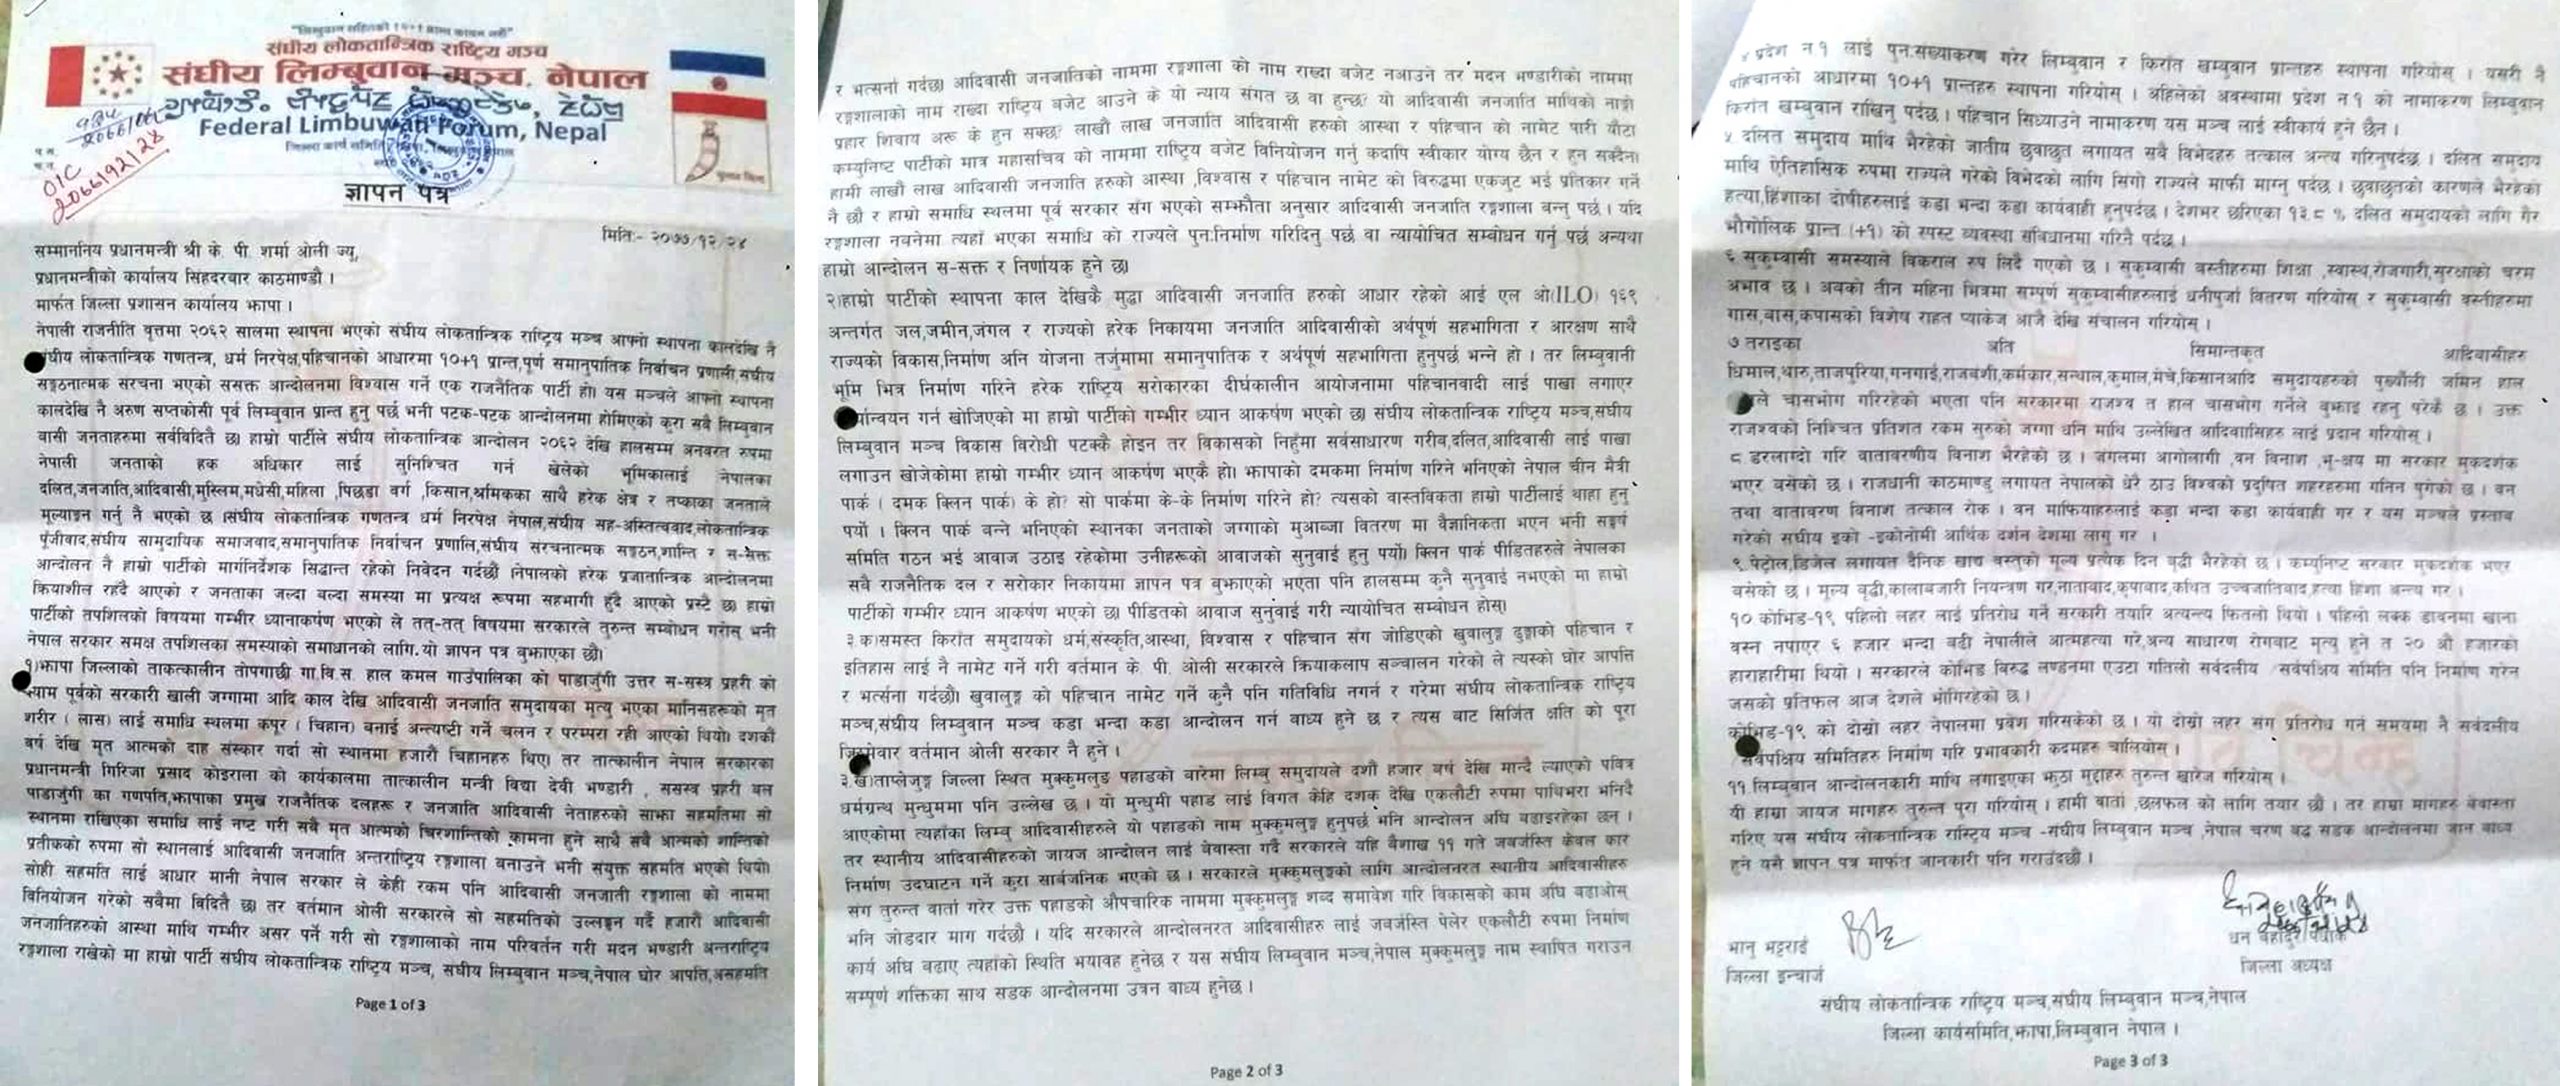 "लिम्बुवान सहितको १०+१ प्रान्त कायम गरौं"
संघीय लोकतान्त्रिक राष्ट्रिय मञ्च
संघीय लिम्बुवान मञ्च, नेपाल
Federal Limbuwan Forum, Nepal
जिल्ला कार्य समिति
प.स.
च.न.
ज्ञापन पत्र
मिति:- २०७७/१२/२४
सम्माननिय प्रधानमन्त्री श्री के. पी. शर्मा ओली ज्यू,
प्रधानमन्त्रीको कार्यालय सिंहदरबार काठमाण्डौ ।
मार्फत जिल्ला प्रशासन कार्यालय झापा ।
नेपाली राजनीति वृत्तमा २०६२ सालमा स्थापना भएको संघीय लोकतान्त्रिक राष्ट्रिय मञ्च आफ्नो स्थापना कालदेखि नै
संघीय लोकतान्त्रिक गणतन्त्र, धर्म निरपेक्ष,पहिचानको आधारमा १०+१ प्रान्त,पूर्ण समानुपातिक निर्वाचन प्रणाली,संघीय
सङ्गठनात्मक संरचना भएको ससक्त आन्दोलनमा विश्वास गर्ने एक राजनैतिक पार्टी हो। यस मञ्चले आफ्नो स्थापना
कालदेखि नै अरुण सप्तकोसी पूर्व लिम्बुवान प्रान्त हुनु पर्छ भनी पटक-पटक आन्दोलनमा होमिएको कुरा सबै लिम्बुवान
वासी जनताहरुमा सर्वविदितै छ। हाम्रो पार्टीले संघीय लोकतान्त्रिक आन्दोलन २०६२ देखि हालसम्म अनवरत रुपमा
नेपाली जनताको हक अधिकार लाई सुनिश्चित गर्न खेलेको भूमिकालाई नेपालका
दलित,जनजाति,आदिवासी,मुस्लिम,मधेसी,महिला ,पिछडा वर्ग ,किसान,श्रमिकका साथै हरेक क्षेत्र र तप्काका जनताले
मूल्याङ्गन गर्नु नै भएको छ ।संघीय लोकतान्त्रिक गणतन्त्र धर्म निरपेक्ष नेपाल,संघीय सह-अस्तित्ववाद,लोकतान्त्रिक
पूँजीवाद,संघीय सामुदायिक समाजवाद,समानुपातिक निर्वाचन प्रणालि,संघीय संरचनात्मक सङ्गठन,शान्ति र स-सक्त
आन्दोलन नै हाम्रो पार्टीको मार्गनिर्देशक सिद्धान्त रहेको निवेदन गर्दछौं ।नेपालको हरेक प्रजातान्त्रिक आन्दोलनमा
क्रियाशील रहँदै आएको र जनताका जल्दा बल्दा समस्या मा प्रत्यक्ष रूपमा सहभागी हुँदै आएको प्रस्टै छ। हाम्रो
पार्टीको तपशिलको विषयमा गम्भीर ध्यानाकर्षण भएको ले तत्-तत् विषयमा सरकारले तुरुन्त सम्बोधन गरोस् भनी
नेपाल सरकार समक्ष तपशिलका समस्याको समाधानको लागि यो ज्ञापन पत्र बुझाएका छौं।
१)झापा जिल्लाको ताकत्कालीन तोपगाछी गा.वि.स. हाल कमल गाउँपालिका को पाडाजुंगी उत्तर स-सस्त्र प्रहरी को
क्याम पूर्वको सरकारी खाली जग्गामा आदि काल देखि आदिवासी जनजाति समुदायका मृत्यु भएका मानिसहरूको मृत
शरीर ( लास) लाई समाधि स्थलमा कपूर ( चिहान) बनाई अन्त्यष्टी गर्ने चलन र परम्परा रही आएको थियो। दशकौं
वर्ष देखि मृत आत्मको दाह संस्कार गर्दा सो स्थानमा हजारौं चिहानहरु थिए। तर तात्कालीन नेपाल सरकारका
प्रधानमन्त्री गिरिजा प्रसाद कोइराला को कार्यकालमा तात्कालीन मन्त्री विद्या देवी भण्डारी , ससस्त्र प्रहरी बल
पाडाजुंगी का गणपति,झापाका प्रमुख राजनैतिक दलहरू र जनजाति आदिवासी नेताहरुको साझा सहमतिमा सो
स्थानमा राखिएका समाधि लाई नष्ट गरी सबै मृत आत्मको चिरशान्तिको कामना हुने साथै सबै आत्मको शान्तिको
प्रतीकको रुपमा सो स्थानलाई आदिवासी जनजाति अन्तराष्ट्रिय रङ्गशाला बनाउने भनी संयुक्त सहमति भएको थियो।
सोही सहमति लाई आधार मानी नेपाल सरकार ले केही रकम पनि आदिवासी जनजाती रङ्गशाला को नाममा
विनियोजन गरेको सबैमा विदितै छ। तर वर्तमान ओली सरकारले सो सहमतिको उल्लङ्घन गर्दै हजारौं आदिवासी
जनजातिहरुको आस्था माथि गम्भीर असर पर्ने गरी सो रङ्गशालाको नाम परिवर्तन गरी मदन भण्डारी अन्तराष्ट्रिय
रङ्गशाला राखेको मा हाम्रो पार्टी संघीय लोकतान्त्रिक राष्ट्रिय मञ्च, संघीय लिम्बुवान मञ्च,नेपाल घोर आपत्ति,असहमति
Page 1 of 3
र भत्सर्ना गर्दछ। आदिवासी जनजातिको नाममा रङ्गशाला को नाम राख्दा बजेट नआउने तर मदन भण्डारीको नाममा
रङ्गशालाको नाम राख्दा राष्ट्रिय बजेट आउने के यो न्याय संगत छ वा हुन्छ? यो आदिवासी जनजाति माथिको नाङ्गो
प्रहार शिवाय अरू के हुन सक्छ? लाखौं लाख जनजाति आदिवासी हरुको आस्था र पहिचान को नामेट पारी यौटा
कम्युनिष्ट पार्टीको मात्र महासचिव को नाममा राष्ट्रिय बजेट विनियोजन गर्नु कदापि स्वीकार योग्य छैन र हुन सक्दैन।
हामी लाखौं लाख आदिवासी जनजाति हरुको आस्था ,विश्वास र पहिचान नामेट को विरुद्धमा एकजुट भई प्रतिकार गर्ने
नै छौं र हाम्रो समाधि स्थलमा पूर्व सरकार संग भएको सम्झौता अनुसार आदिवासी जनजाति रङ्गशाला बन्नु पर्छ । यदि
रङ्गशाला नबनेमा त्यहाँ भएका समाधि को राज्यले पुन:निर्माण गरिदिनु पर्छ वा न्यायोचित सम्बोधन गर्नु पर्छ अन्यथा
हाम्रो आन्दोलन स-सक्त र निर्णायक हुने छ।
२)हाम्रो पार्टीको स्थापना काल देखिकै मुद्धा आदिवासी जनजाति हरुको आधार रहेको आई एल ओ(ILO) १६९
अन्तर्गत जल,जमीन,जंगल र राज्यको हरेक निकायमा जनजाति आदिवासीको अर्थपूर्ण सहभागिता र आरक्षण साथै
राज्यको विकास,निर्माण अनि योजना तर्जुमामा समानुपातिक र अर्थपूर्ण सहभागिता हुनुपर्छ भन्ने हो । तर लिम्बुवानी
भूमि भित्र निर्माण गरिने हरेक राष्ट्रिय सरोकारका दीर्घकालीन आयोजनामा पहिचानवादी लाई पाखा लगाएर
कार्यान्वयन गर्न खोजिएको मा हाम्रो पार्टीको गम्भीर ध्यान आकर्षण भएको छ। संघीय लोकतान्त्रिक राष्ट्रिय मञ्च,संघीय
लिम्बुवान मञ्च विकास विरोधी पटक्कै होइन तर विकासको निहुँमा सर्वसाधारण गरीब,दलित,आदिवासी लाई पाखा
लगाउन खोजेकोमा हाम्रो गम्भीर ध्यान आकर्षण भएकै हो। झापाको दमकमा निर्माण गरिने भनिएको नेपाल चीन मैत्री
पार्क ( दमक क्लिन पार्क) के हो? सो पार्कमा के-के निर्माण गरिने हो? त्यसको वास्तविकता हाम्रो पार्टीलाई थाहा हुनु
पर्यो । क्लिन पार्क बन्ने भनिएको स्थानका जनताको जग्गाको मुआब्जा वितरण मा वैज्ञानिकता भएन भनी सङ्घर्ष
समिति गठन भई आवाज उठाइ रहेकोमा उनीहरूको आवाजको सुनुवाई हुनु पर्यो। क्लिन पार्क पीडितहरुले नेपालका
सबै राजनैतिक दल र सरोकार निकायमा ज्ञापन पत्र बुझाएको भएता पनि हालसम्म कुनै सुनुवाई नभएको मा हाम्रो
पार्टीको गम्भीर ध्यान आकर्षण भएको छ। पीडितको आवाज सुनुवाई गरी न्यायोचित सम्बोधन होस्।
३.क)समस्त किराँत समुदायको धर्म,संस्कृति,आस्था, विश्वास र पहिचान संग जोडिएको खुवालुङ्ग ढुङ्गाको पहिचान र
इतिहास लाई नै नामेट गर्ने गरी वर्तमान के. पी. ओली सरकारले क्रियाकलाप सञ्चालन गरेको ले त्यस्को घोर आपत्ति
र भर्त्सना गर्दछौं। खुवालुङ्ग को पहिचान नामेट गर्ने कुनै पनि गतिविधि नगर्न र गरेमा संघीय लोकतान्त्रिक राष्ट्रिय
मञ्च,संघीय लिम्बुवान मञ्च कडा भन्दा कडा आन्दोलन गर्न वाध्य हुने छ र त्यस बाट सिर्जित क्षति को पूरा
जिम्मेवार वर्तमान ओली सरकार नै हुने ।
३.ख)ताप्लेजुङ्ग जिल्ला स्थित मुक्कुमलुङ पहाडको बारेमा लिम्बु समुदायले दशौं हजार बर्ष देखि मान्दै ल्याएको पवित्र
धर्मग्रन्थ मुन्धुममा पनि उल्लेख छ । यो मुन्धुमी पहाड लाई विगत केहि दशक देखि एकलौटी रुपमा पाथिभरा भनिदै
आएकोमा त्यहाँका लिम्बु आदिवासीहरुले यो पहाडको नाम मुक्कुमलुङ्ग हुनुपर्छ भनि आन्दोलन अघि बढाइरहेका छन् ।
तर स्थानीय आदिवासीहरुको जायज आन्दोलन लाई बेवास्ता गर्दै सरकारले यहि बैशाख ११ गते जबर्जस्ति केबल कार
निर्माण उदघाटन गर्ने कुरा सार्बजनिक भएको छ । सरकारले मुक्कुमलुङ्गको लागि आन्दोलनरत स्थानीय आदिवासीहरु
संग तुरुन्त वार्ता गरेर उक्त पहाडको औपचारिक नाममा मुक्कुमलुङ्ग शब्द समावेश गरि विकासको काम अघि बढाओस्
भनि जोडदार माग गर्दछौं । यदि सरकारले आन्दोलनरत आदिवासीहरु लाई जबर्जस्ति पेलेर एकलौटी रुपमा निर्माण
कार्य अघि बढाए त्यहाँको स्थिति भयावह हुनेछ र यस संघीय लिम्बुवान मञ्च,नेपाल मुक्कुमलुङ्ग नाम स्थापित गराउन
सम्पूर्ण शक्तिका साथ सडक आन्दोलनमा उत्रन वाध्य हुनेछ ।
Page 2 of 3
४ प्रदेश न १ लाई पुन:संख्याकरण गरेर लिम्बुवान र किराँत खम्बुवान प्रान्तहरु स्थापना गरियोस् । यसरी नै
पहिचानको आधारमा १०+१ प्रान्तहरु स्थापना गरियोस् । अहिलेको अवस्थामा प्रदेश न १ को नामाकरण लिम्बुवान
किराँत खम्बुवान राखिनु पर्दछ । पहिचान सिध्याउने नामाकरण यस मञ्च लाई स्वीकार्य हुने छैन ।
५ दलित समुदाय माथि भैरहेको जातीय छुवाछुत लगायत सबै विभेदहरु तत्काल अन्त्य गरिनुपर्दछ । दलित समुदाय
माथि ऐतिहासिक रुपमा राज्यले गरेको विभेदको लागि सिंगो राज्यले माफी माग्नु पर्दछ । छुवाछुतको कारणले भैरहेको
हत्या,हिंशाका दोषीहरुलाई कडा भन्दा कडा कार्यवाही हुनुपर्दछ । देशभर छरिएका १३.८ % दलित समुदायको लागि गैर
भौगोलिक प्रान्त (+१) को स्पस्ट ब्यवस्था संविधानमा गरिनै पर्दछ ।
६ सुकुम्वासी समस्याले विकराल रुप लिदै गएको छ । सुकुम्वासी बस्तीहरुमा शिक्षा ,स्वास्थ,रोजगारी,सुरक्षाको चरम
अभाव छ । अबको तीन महिना भित्रमा सम्पूर्ण सुकुम्वासीहरुलाई धनीपुर्जा वितरण गरियोस् र सुकुम्वासी बस्तीहरुमा
गास,बास,कपासको विशेष राहत प्याकेज आजै देखि संचालन गरियोस् ।
७ तराइका अति सिमान्तकृत आदिवासीहरु
धिमाल,थारु,ताजपुरिया,गनगाई,राजबंशी,कर्मकार,सन्थाल,कुमाल,मेचे,किसानआदि समुदायहरुको पुर्ख्यौली जमिन हाल
ले चासभोग गरिरहेको भएता पनि सरकारमा राजश्व त हाल चासभोग गर्नेले बुझाइ रहनु परेकै छ । उक्त
राजश्वको निश्चित प्रतिशत रकम सुरुको जग्गा धनि माथि उल्लेखित आदिवासिहरु लाई प्रदान गरियोस् ।
८ डरलाग्दो गरि बातावरणीय विनाश भैरहेको छ । जंगलमा आगोलागी ,वन विनाश ,भू-क्षय मा सरकार मुकदर्शक
भएर बसेको छ । राजधानी काठमाण्डु लगायत नेपालको धेरै ठाउ विश्वको प्रदुषित शहरहरुमा गनिन पुगेको छ । वन
तथा बाताबरण विनाश तत्काल रोक । वन माफियाहरुलाई कडा भन्दा कडा कार्यवाही गर र यस मञ्चले प्रस्ताव
गरेको संघीय इको -इकोनोमी आर्थिक दर्शन देशमा लागु गर ।
९ पेट्रोल,डिजेल लगायत दैनिक खाद्य बस्तुको मूल्य प्रत्येक दिन बृद्धी भैरहेको छ । कम्युनिष्ट सरकार मुकदर्शक भएर
बसेको छ । मूल्य बृद्धी,कालाबजारी नियन्त्रण गर,नाताबाद,कृपाबाद,कथित उच्चजातिबाद,हत्या हिंशा अन्त्य गर ।
१० कोभिड-१९ पहिलो लहर लाई प्रतिरोध गर्ने सरकारी तयारि अत्यन्त्य फितलो थियो । पहिलो लक्क डावनमा खाना
बस्न नपाएर ६ हजार भन्दा बढी नेपालीले आत्महत्या गरे,अन्य साधारण रोगबाट मृत्यु हुने त २० औं हजारको
हाराहारीमा थियो । सरकारले कोभिड बिरुद्ध लण्डनमा एउटा गतिलो सर्वदलीय /सर्वपक्षिय समिति पनि निर्माण गरेन
जसको प्रतिफल आज देशले भोगिरहेको छ ।
कोभिड-१९ को दोस्रो लहर नेपालमा प्रवेश गरिसकेको छ । यो दोस्रो लहर संग प्रतिरोध गर्न समयमा नै सर्वदलीय
सर्वपक्षिय समितिहरु निर्माण गरि प्रभावकारी कदमहरु चालियोस् ।
११.लिम्बुवान आन्दोलनकारी माथि लगाइएका झुठा मुद्दाहरु तुरुन्त खारेज गरियोस् ।
यी हाम्रा जायज मागहरु तुरुन्त पुरा गरियोस् । हामी वार्ता ,छलफल को लागि तयार छौं । तर हाम्रा मागहरु बेवास्ता
गरिए यस संघीय लोकतान्त्रिक रास्ट्रिय मञ्च -संघीय लिम्बुवान मञ्च ,नेपाल चरण बद्ध सडक आन्दोलनमा जान बाध्य
हुने यसै ज्ञापन पत्र मार्फत जानकारी पनि गराउंदछौं ।
भानु भट्टराई
जिल्ला इन्चार्ज
धन बहादुर
जिल्ला अध्यक्ष
संघीय लोकतान्त्रिक राष्ट्रिय मञ्च,संघीय लिम्बुवान मञ्च,नेपाल
जिल्ला कार्यसमिति,झापा,लिम्बुवान नेपाल ।
Page 3 of 3